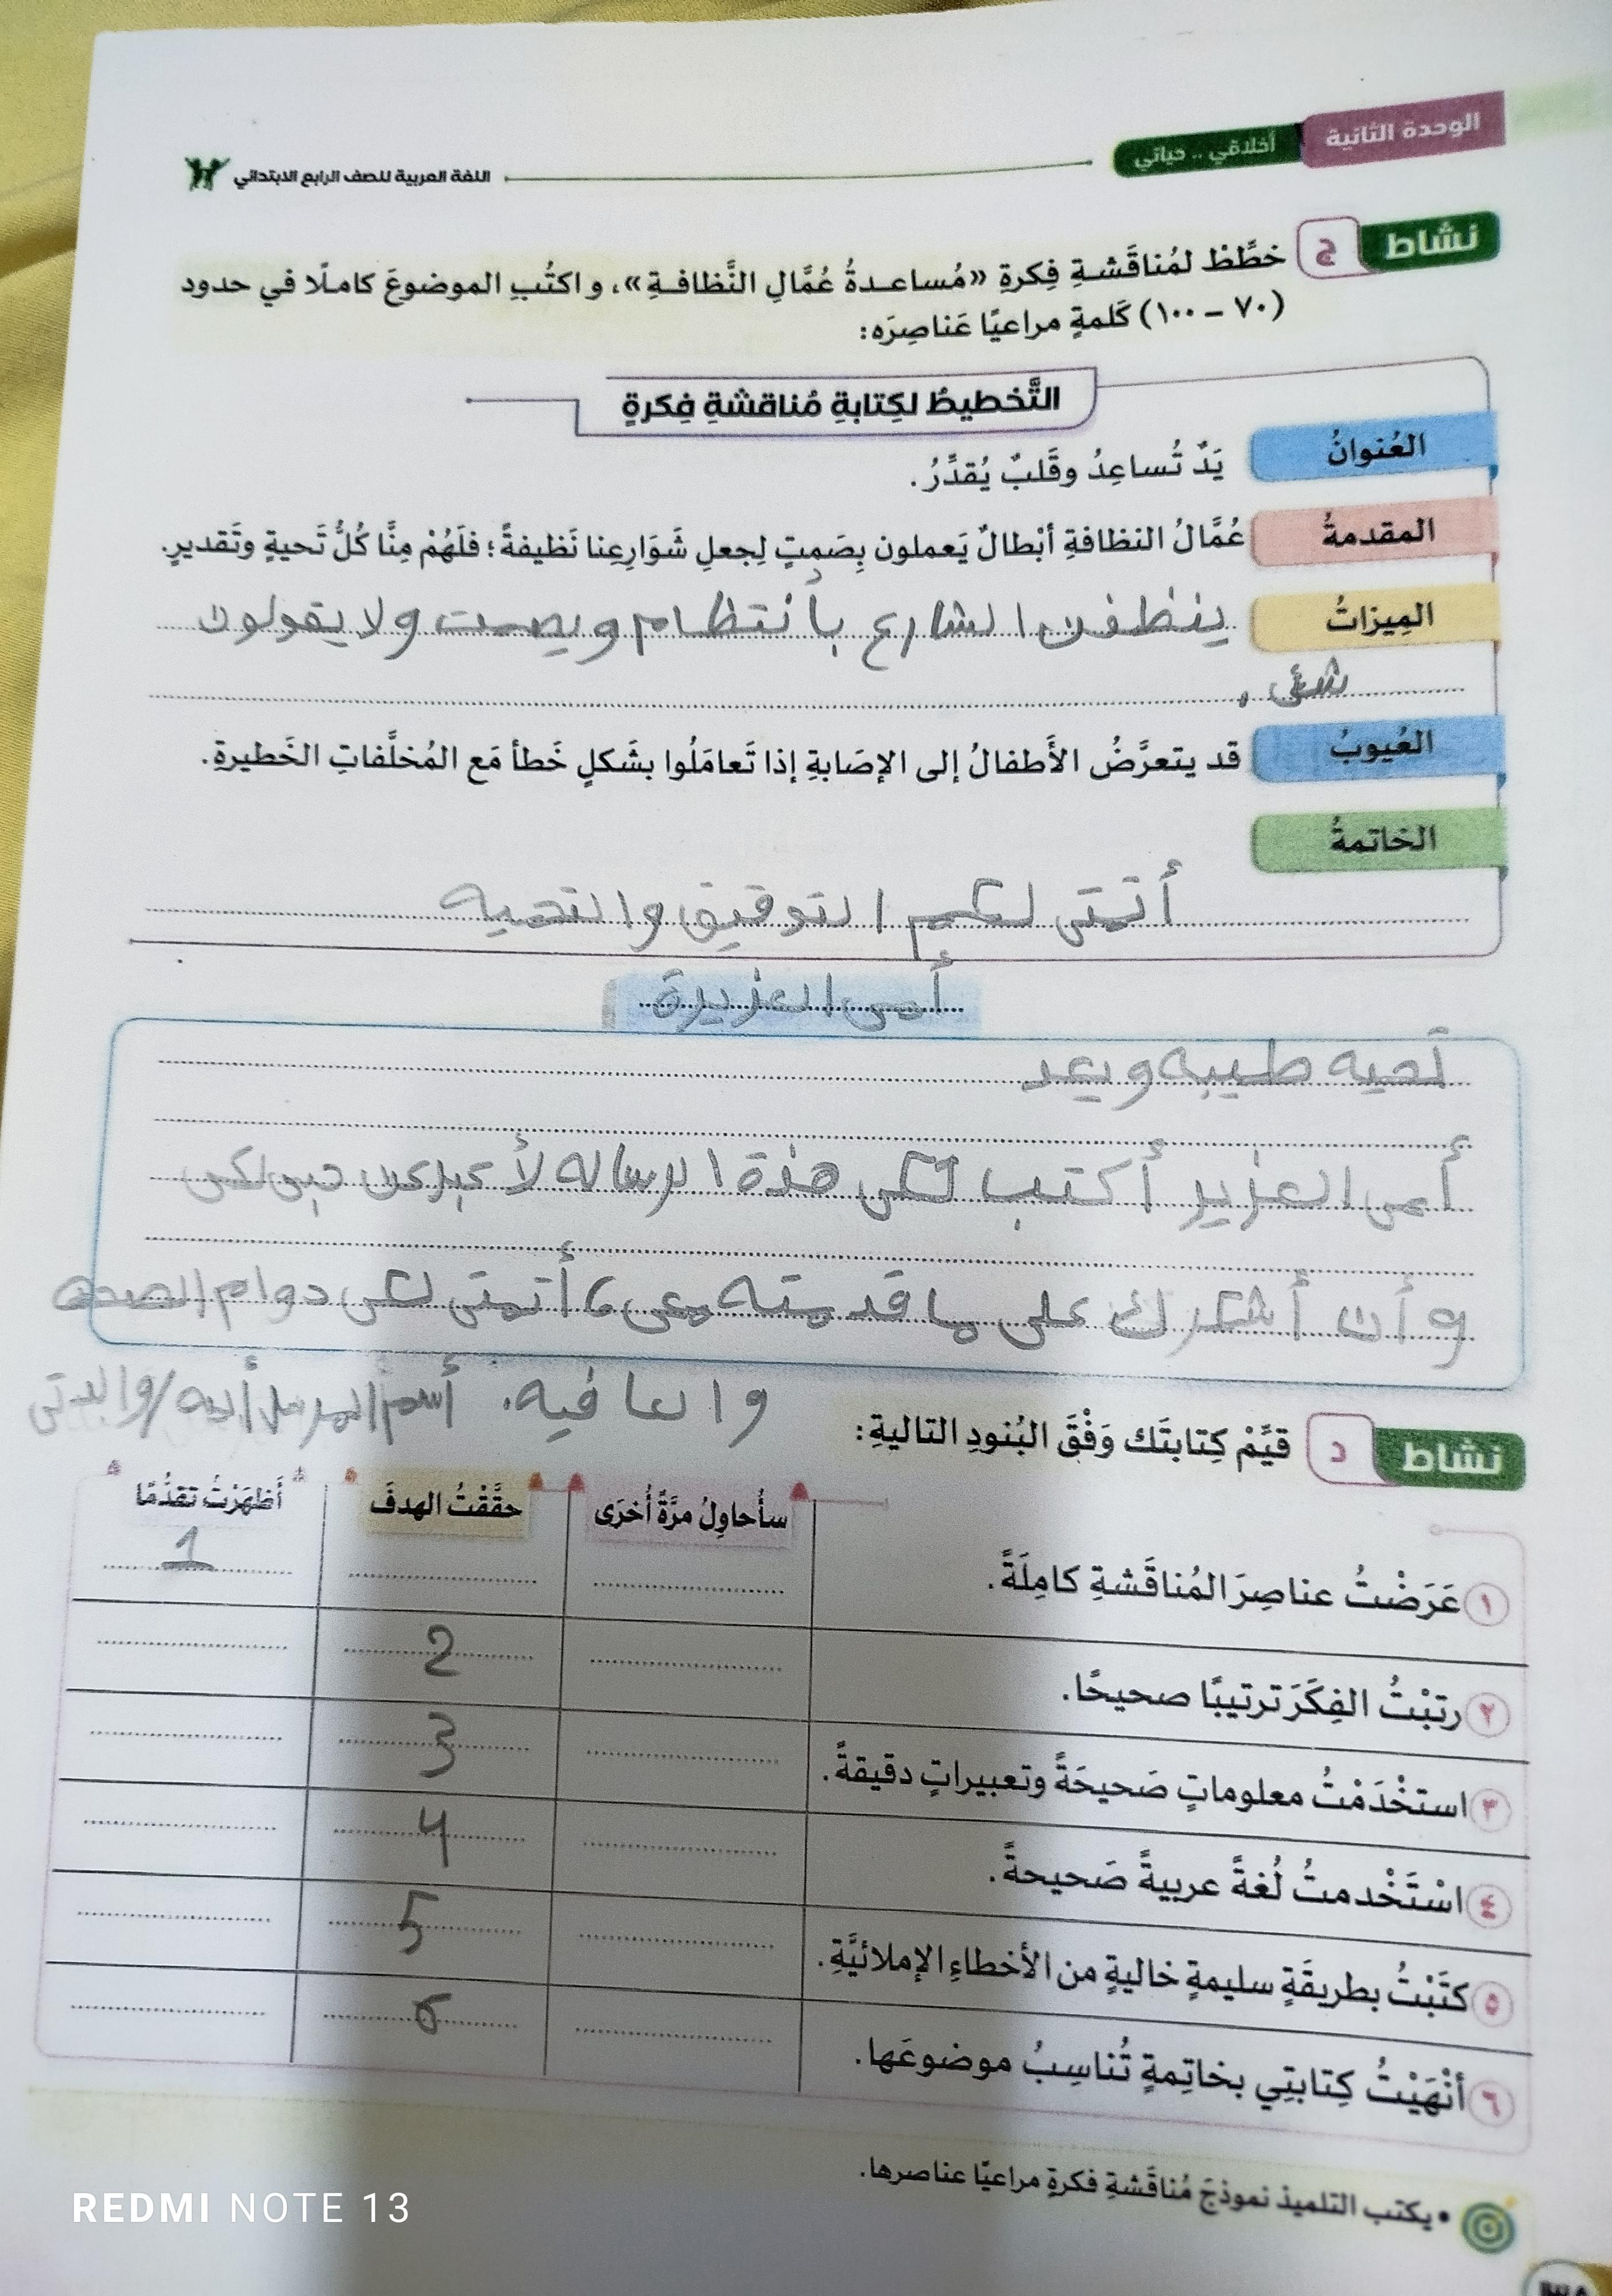 الوحدة الثانية
أخلاقي .. حياتي
اللغة العربية للصف الرابع الابتدائي
نشاط ج
خطَّطْ لمُناقَشةِ فِكرةِ «مُساعدةُ عُمَّالِ النَّظافةِ»، واكتُبِ الموضوعَ كاملًا في حدود
(٧٠ – ١٠٠) كَلمةٍ مراعيًا عَناصِرَه:
التَّخطيطُ لكِتابةِ مُناقشةِ فِكرةٍ
العُنوانُ
يَدٌ تُساعِدُ وقَلبٌ يُقدِّرُ.
المقدمةُ
عُمَّالُ النظافةِ أبْطالٌ يَعملون بِصَمتٍ لِجعلِ شَوَارِعِنا نَظيفةً؛ فلَهُمْ مِنَّا كُلُّ تَحيةٍ وتَقديرٍ.
المِيزاتُ
ينظفن الشارع بأنتظام وبصمت ولا يقولون
شئ.
العُيوبُ
قد يتعرَّضُ الأَطفالُ إلى الإصَابةِ إذا تَعامَلُوا بشَكلٍ خَطأ مَع المُخلَّفاتِ الخَطيرةِ.
الخاتمةُ
أتمتى لكم التوقيق والتحيه
أمى العزيزة
تحيه طيبه وبعد
أمى العزيز أكتب لكى هذة الرساله لأعبر عن حبى لكى
وأن أشكرك على ما قدمته معى، أتمتى لكى دوام الصحه
والعافيه. أسم المرسل أليه/والدتى
نشاط د
قيِّمْ كِتابتَك وَفْقَ البُنودِ التاليةِ:
سأُحاوِلُ مرَّةً أُخرَى
حقَّقْتُ الهدفَ
أَظهَرْتُ تقدُّمًا
١ عَرَضْتُ عناصِرَ المُناقَشةِ كامِلَةً.
1
٢ رتبْتُ الفِكَرَ ترتيبًا صحيحًا.
2
٣ استخْدَمْتُ معلوماتٍ صَحيحَةً وتعبيراتٍ دقيقةً.
3
٤ اسْتَخْدمتُ لُغةً عربيةً صَحيحةً.
4
٥ كتَبْتُ بطريقَةٍ سليمةٍ خاليةٍ من الأخطاءِ الإملائيَّةِ.
5
٦ أنْهَيْتُ كِتابتِي بخاتِمةٍ تُناسِبُ موضوعَها.
6
• يكتب التلميذ نموذجَ مُناقَشةِ فكرةٍ مراعيًا عناصرها.
REDMI NOTE 13